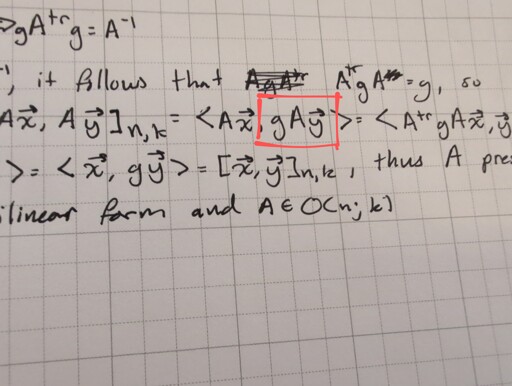 =>gAᵗʳg = A⁻¹
⁻¹, it follows that AᵗʳgA = g, so
Ax⃗, Ay⃗]ₙ,ₖ = <Ax⃗, gAy⃗> = <AᵗʳgAx⃗, y⃗
> = <x⃗, gy⃗> = [x⃗, y⃗]ₙ,ₖ, thus A pre
ilinear form and A ∈ O(n; k)